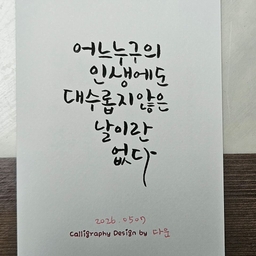 어느누구의
인생에도
대수롭지않은
날이란
없다
2026. 0507
Calligraphy Design by 다운